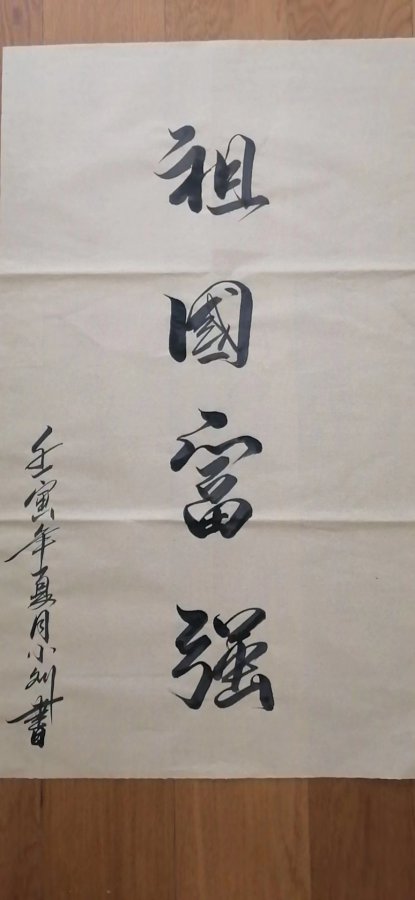 祖國富強
壬寅年夏月小刘書